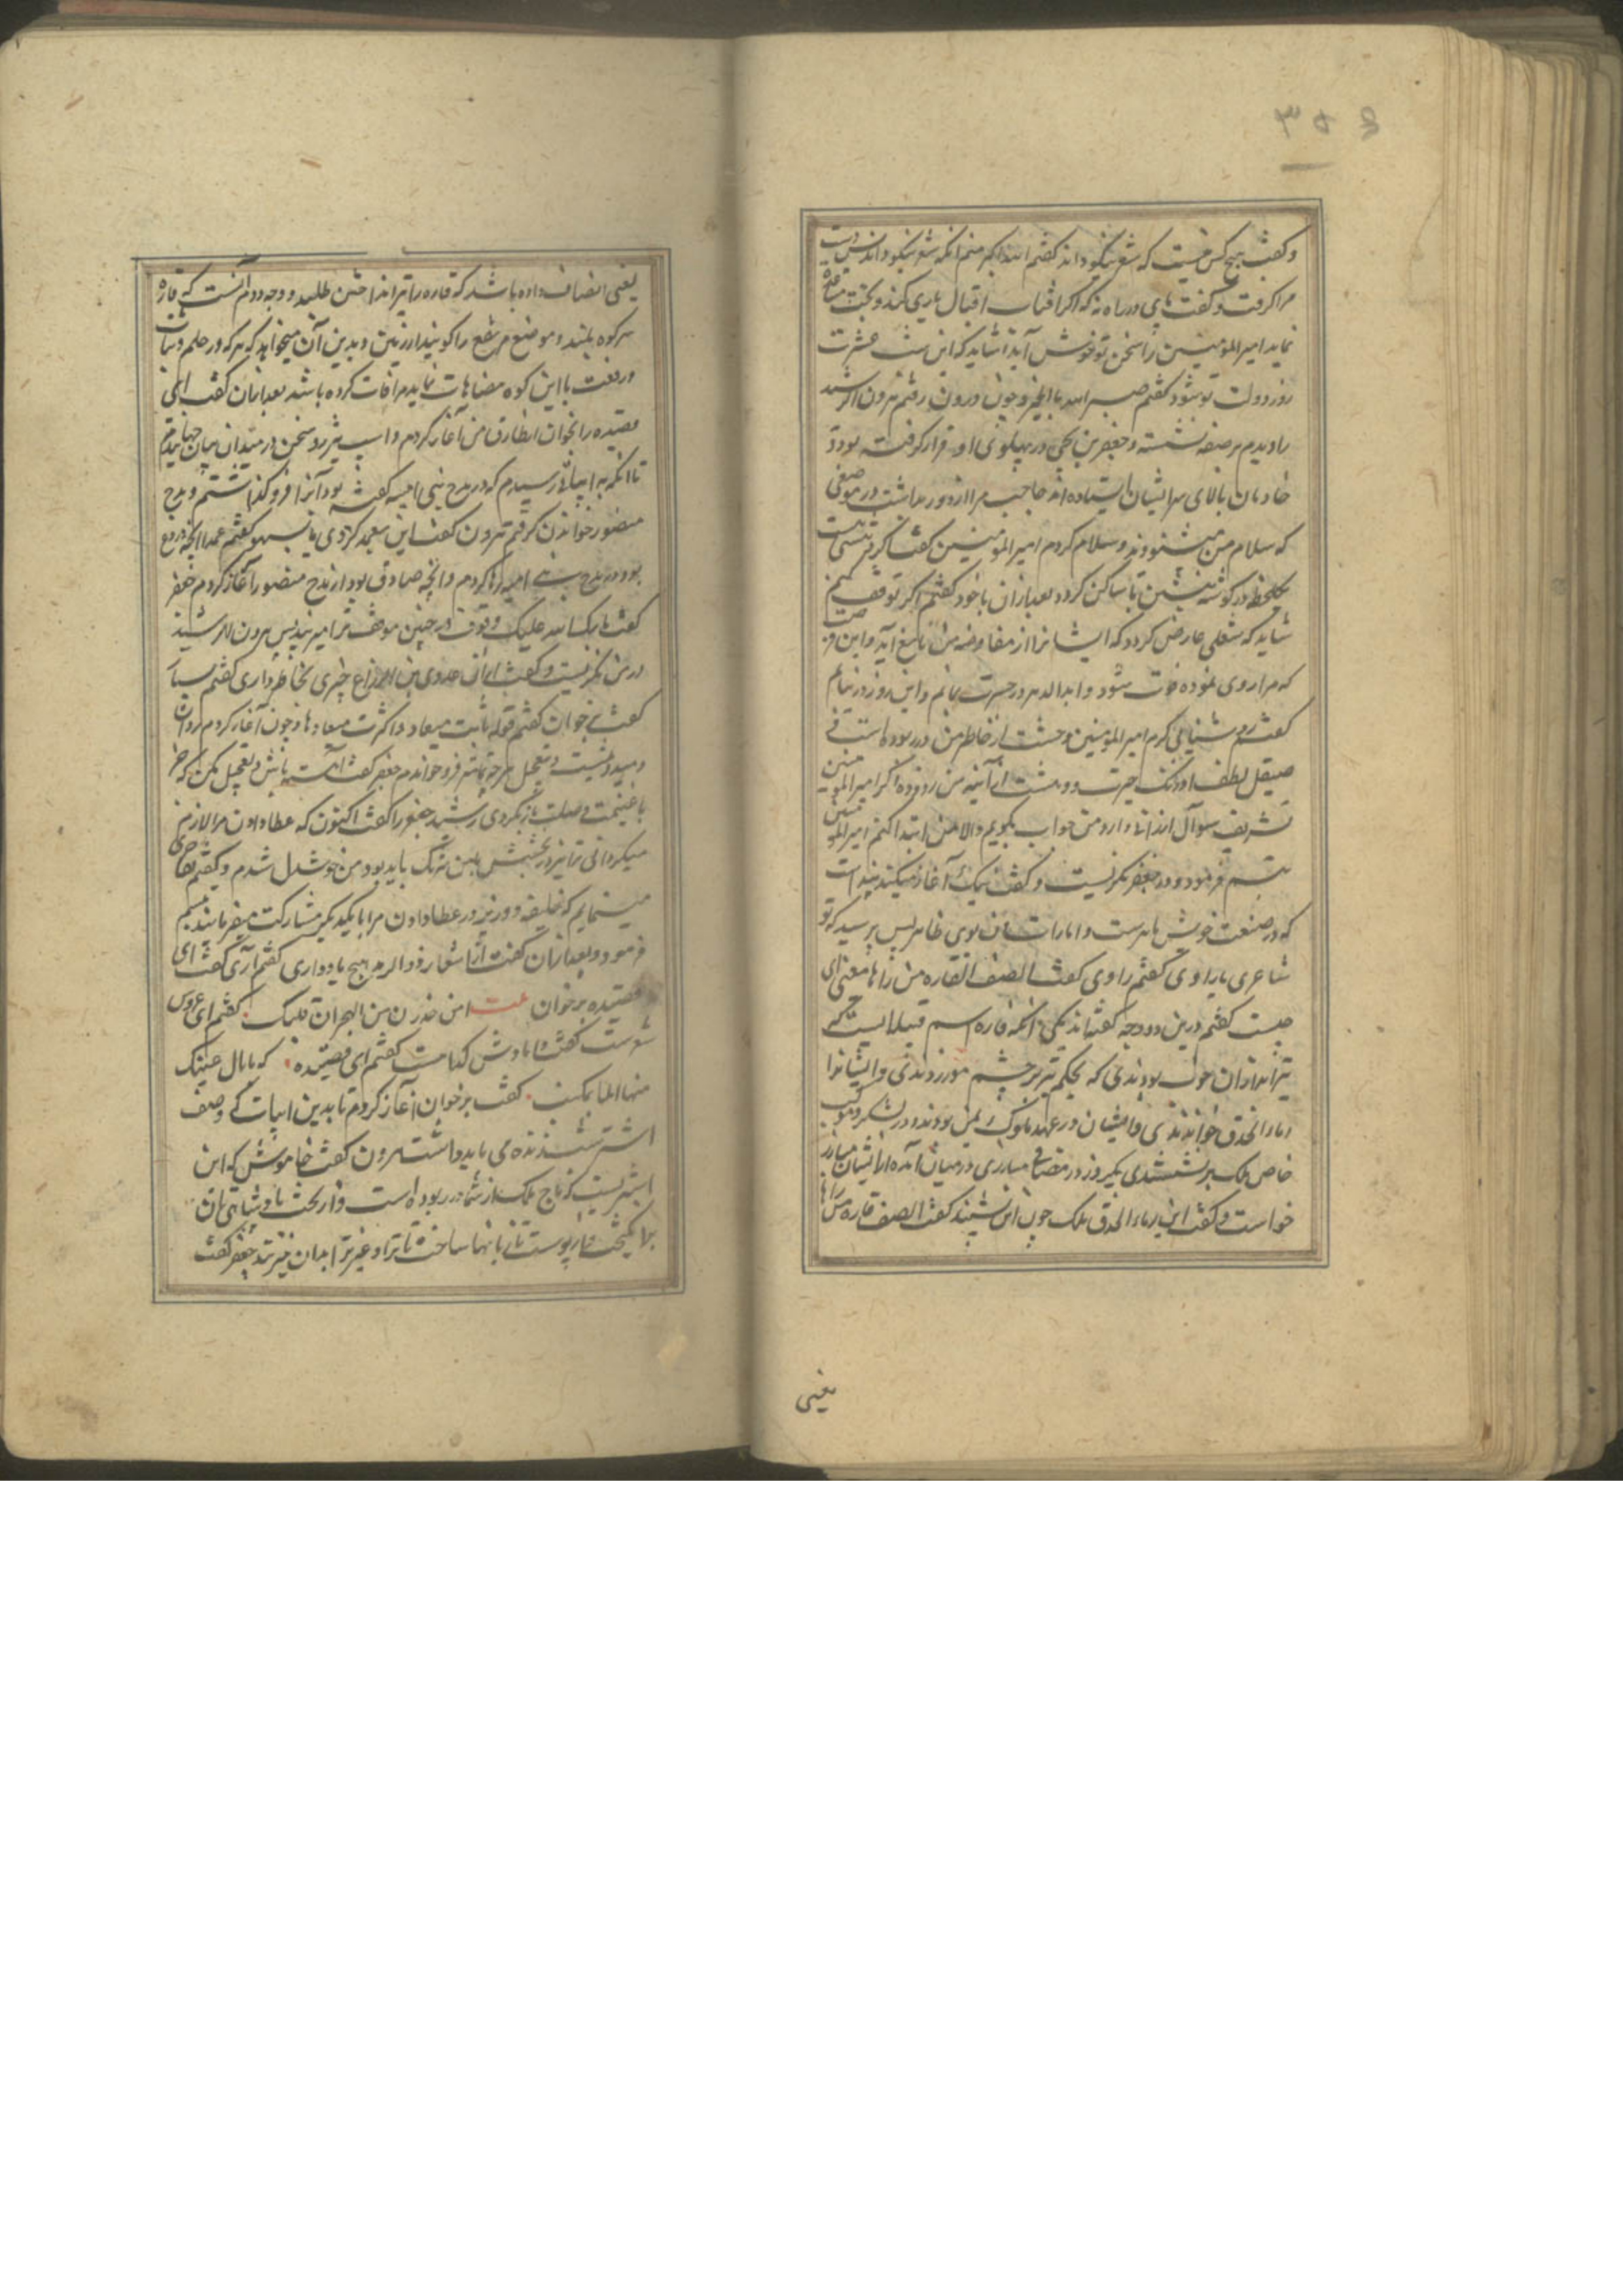 ۳۵۵
و گفت هیچ کس هست که شعر نیکو داند گفتم الله اکبر منم آنکه شعر نیکو داند پس دست
مرا گرفت و گفت پای در راه نه که اگر آفتاب اقبال یاری کند و بخت مساعده
نماید امیر المومنین را سخن تو خوش آید شاید که این شب عشرت
روز دولت تو شود گفتم بالخیر و چون درون رفتم هرون الرشید
را دیدم بر صفه نشسته و جعفر بن یحیی در پهلوی او قرار گرفته بود و
خادمان بالای سر ایشان ایستاده اند حاجب مرا از دور بداشت در موضعی
که سلام من میشنودند و سلام کردم امیر المومنین گفت اگر ترا
یکلحظه در گوشه بنشین تا ساکن گردد بعد از آن با خود گفتم اگر توقف کنم
شاید که شغلی عارض گردد که ایشانرا از مفاوضه من مانع آید و این فرصت
که مرا روی نموده فوت شود و ابد الدهر در حسرت بمانم و این روز در نیابم
گفتم روشنایی کرم امیر المومنین وحشت از خاطر من در ربوده است و
صیقل لطف او زنگ حیرت و دهشت از آئینه من زدوده اگر امیر المومنین
تشریف سوال ارزانی دارد من جواب بگویم والا من ابتدا کنم امیر المومنین
تبسم فرمود و در جعفر نگریست و گفت نیک آغاز میکند پیداست
که در صنعت خویش ماهرست و امارات آن بروی ظاهر پس پرسید که تو
شاعری یا راوی گفتم راوی گفت انصف القاره من راماها معنی این
چیست گفتم درین دو وجه گفته اند یکی آنکه قاره اسم قبیله ایست که
تیراندازان خوب بودندی که بحکم تیر بر چشم زدندی و ایشانرا
رماه الحدق خواندندی و ایشان در عهد ملوک یمن بودند و در لشکر و موکب
خاص ملک بر نشستندی یکروز در مصافی مبارزی در میان آمده از ایشان مبارز
خواست و گفت این رماه الحدق ملک چون این شنید گفت انصف قاره من راماها
یعنی
یعنی انصاف داده باشد که قاره را تیر انداختن طلبید و وجه دوم آنست که قاره
سر کوه بلند و موضع مرتفع را گویند از زمین و بدین آن میخواهد که هر که در حلم و ثبات
و رفعت با این کوه مضاهات نماید مرافات کرده باشد بعد از آن گفت این
قصیده را بخوان من آغاز کردم و اسب تیز رو سخن در میدان بیان جهانیدم
تا آنکه به ابیات رسیدم که در مدح بنی امیه گفته بود آنرا فرو گذاشتم و مدح
منصور خواندن گرفتم هرون گفت این بعمد کردی یا بسهو گفتم عمدا آنچه دروغ
بود در مدح بنی امیه رها کردم و آنچه صادق بود از مدح منصور آغاز کردم جعفر
گفت بارک الله علیک وقوف در چنین موقف ترا میزیبد پس هرون الرشید
در من نگریست و گفت از اشعار عدی بن الرقاع چیزی بخاطر داری گفتم بسیار
گفت بخوان گفتم قوله بانت سعاد و اکثرت میعادها و چون آغاز کردم روان
و تعجیل هر چه تمامتر فرو خواندم جعفر گفت آهسته باش و تعجیل مکن که جز
با غنیمت و صلت باز نگردی رشید جعفر را گفت اکنون که عطا دادن مرا لازم
میگردانی ترا نیز در بخشش من شریک باید بود من خوشدل شدم و گفتم
مینمایم که خلیفه و وزیر در عطا دادن مرا با یکدیگر مشارکت میفرمایند تبسم
فرمود و بعد از آن گفت از اشعار ذو الرمه هیچ یاد داری گفتم آری گفت این
قصیده برخوان بیت امن حذر من الهجران قلبک گفتم این عروس
شعرست گفت دامادش کدامست گفتم این قصیده که ما بال عینک
منها الما ینسکب گفت برخوان آغاز کردم تا بدین ابیات که وصف
اشتر هرون گفت خاموش که این
اشتریست که تاج ملک از شما در ربوده است و از تخت پادشاهی تان
برانگیخت و از پوست تازیانها ساخت تا ترا و غیر ترا بدان میزند جعفر گفت